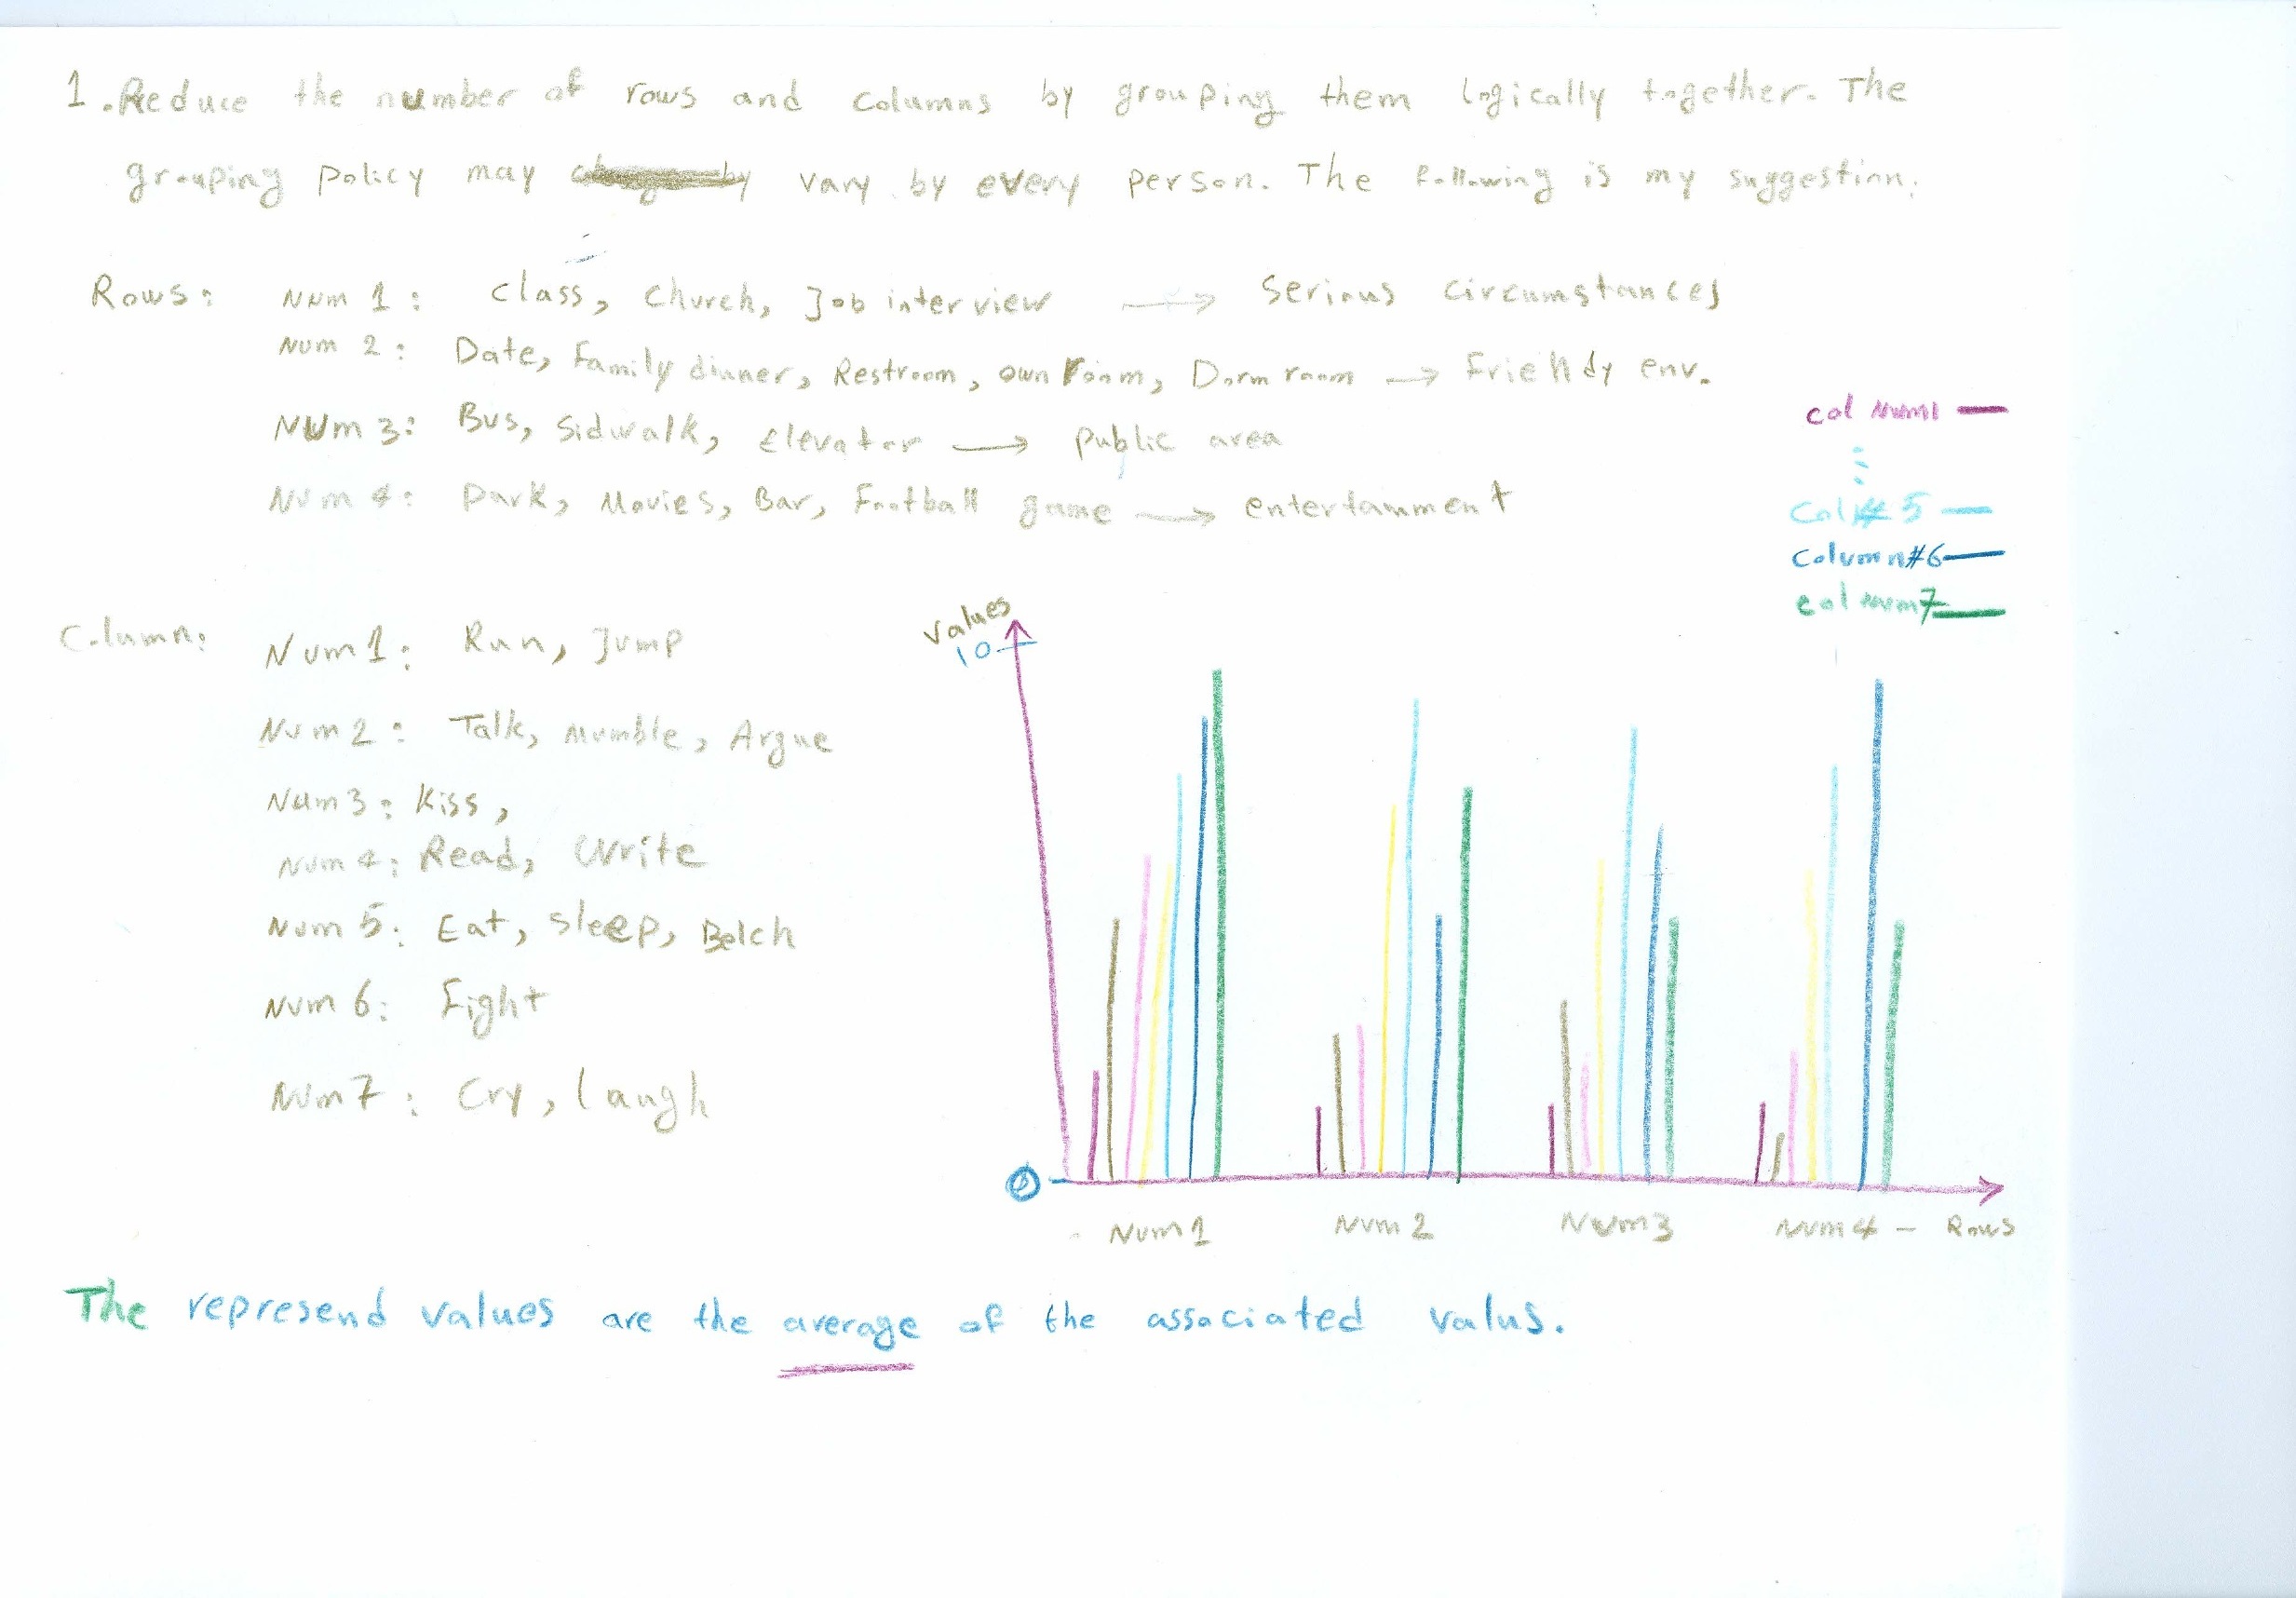 1. Reduce the number of rows and columns by grouping them logically together. The
grouping policy may vary by every person. The following is my suggestion:
Rows: Num 1: Class, Church, Job interview → Serious circumstances
Num 2: Date, Family dinner, Restroom, own room, Dorm room → Friendy env.
Num 3: Bus, Sidwalk, Elevator → public area
Num 4: Park, Movies, Bar, Football game → entertainment
col Num1
Col# 5
Column#6
col num7
Column: Num1: Run, Jump
Num2: Talk, Mumble, Argue
Num3: Kiss,
Num4: Read, Write
Num 5: Eat, Sleep, Belch
Num 6: Fight
Num7: Cry, laugh
Values
10
0
Num1 Num2 Num3 Num4 - Rows
The represend values are the average of the associated valus.